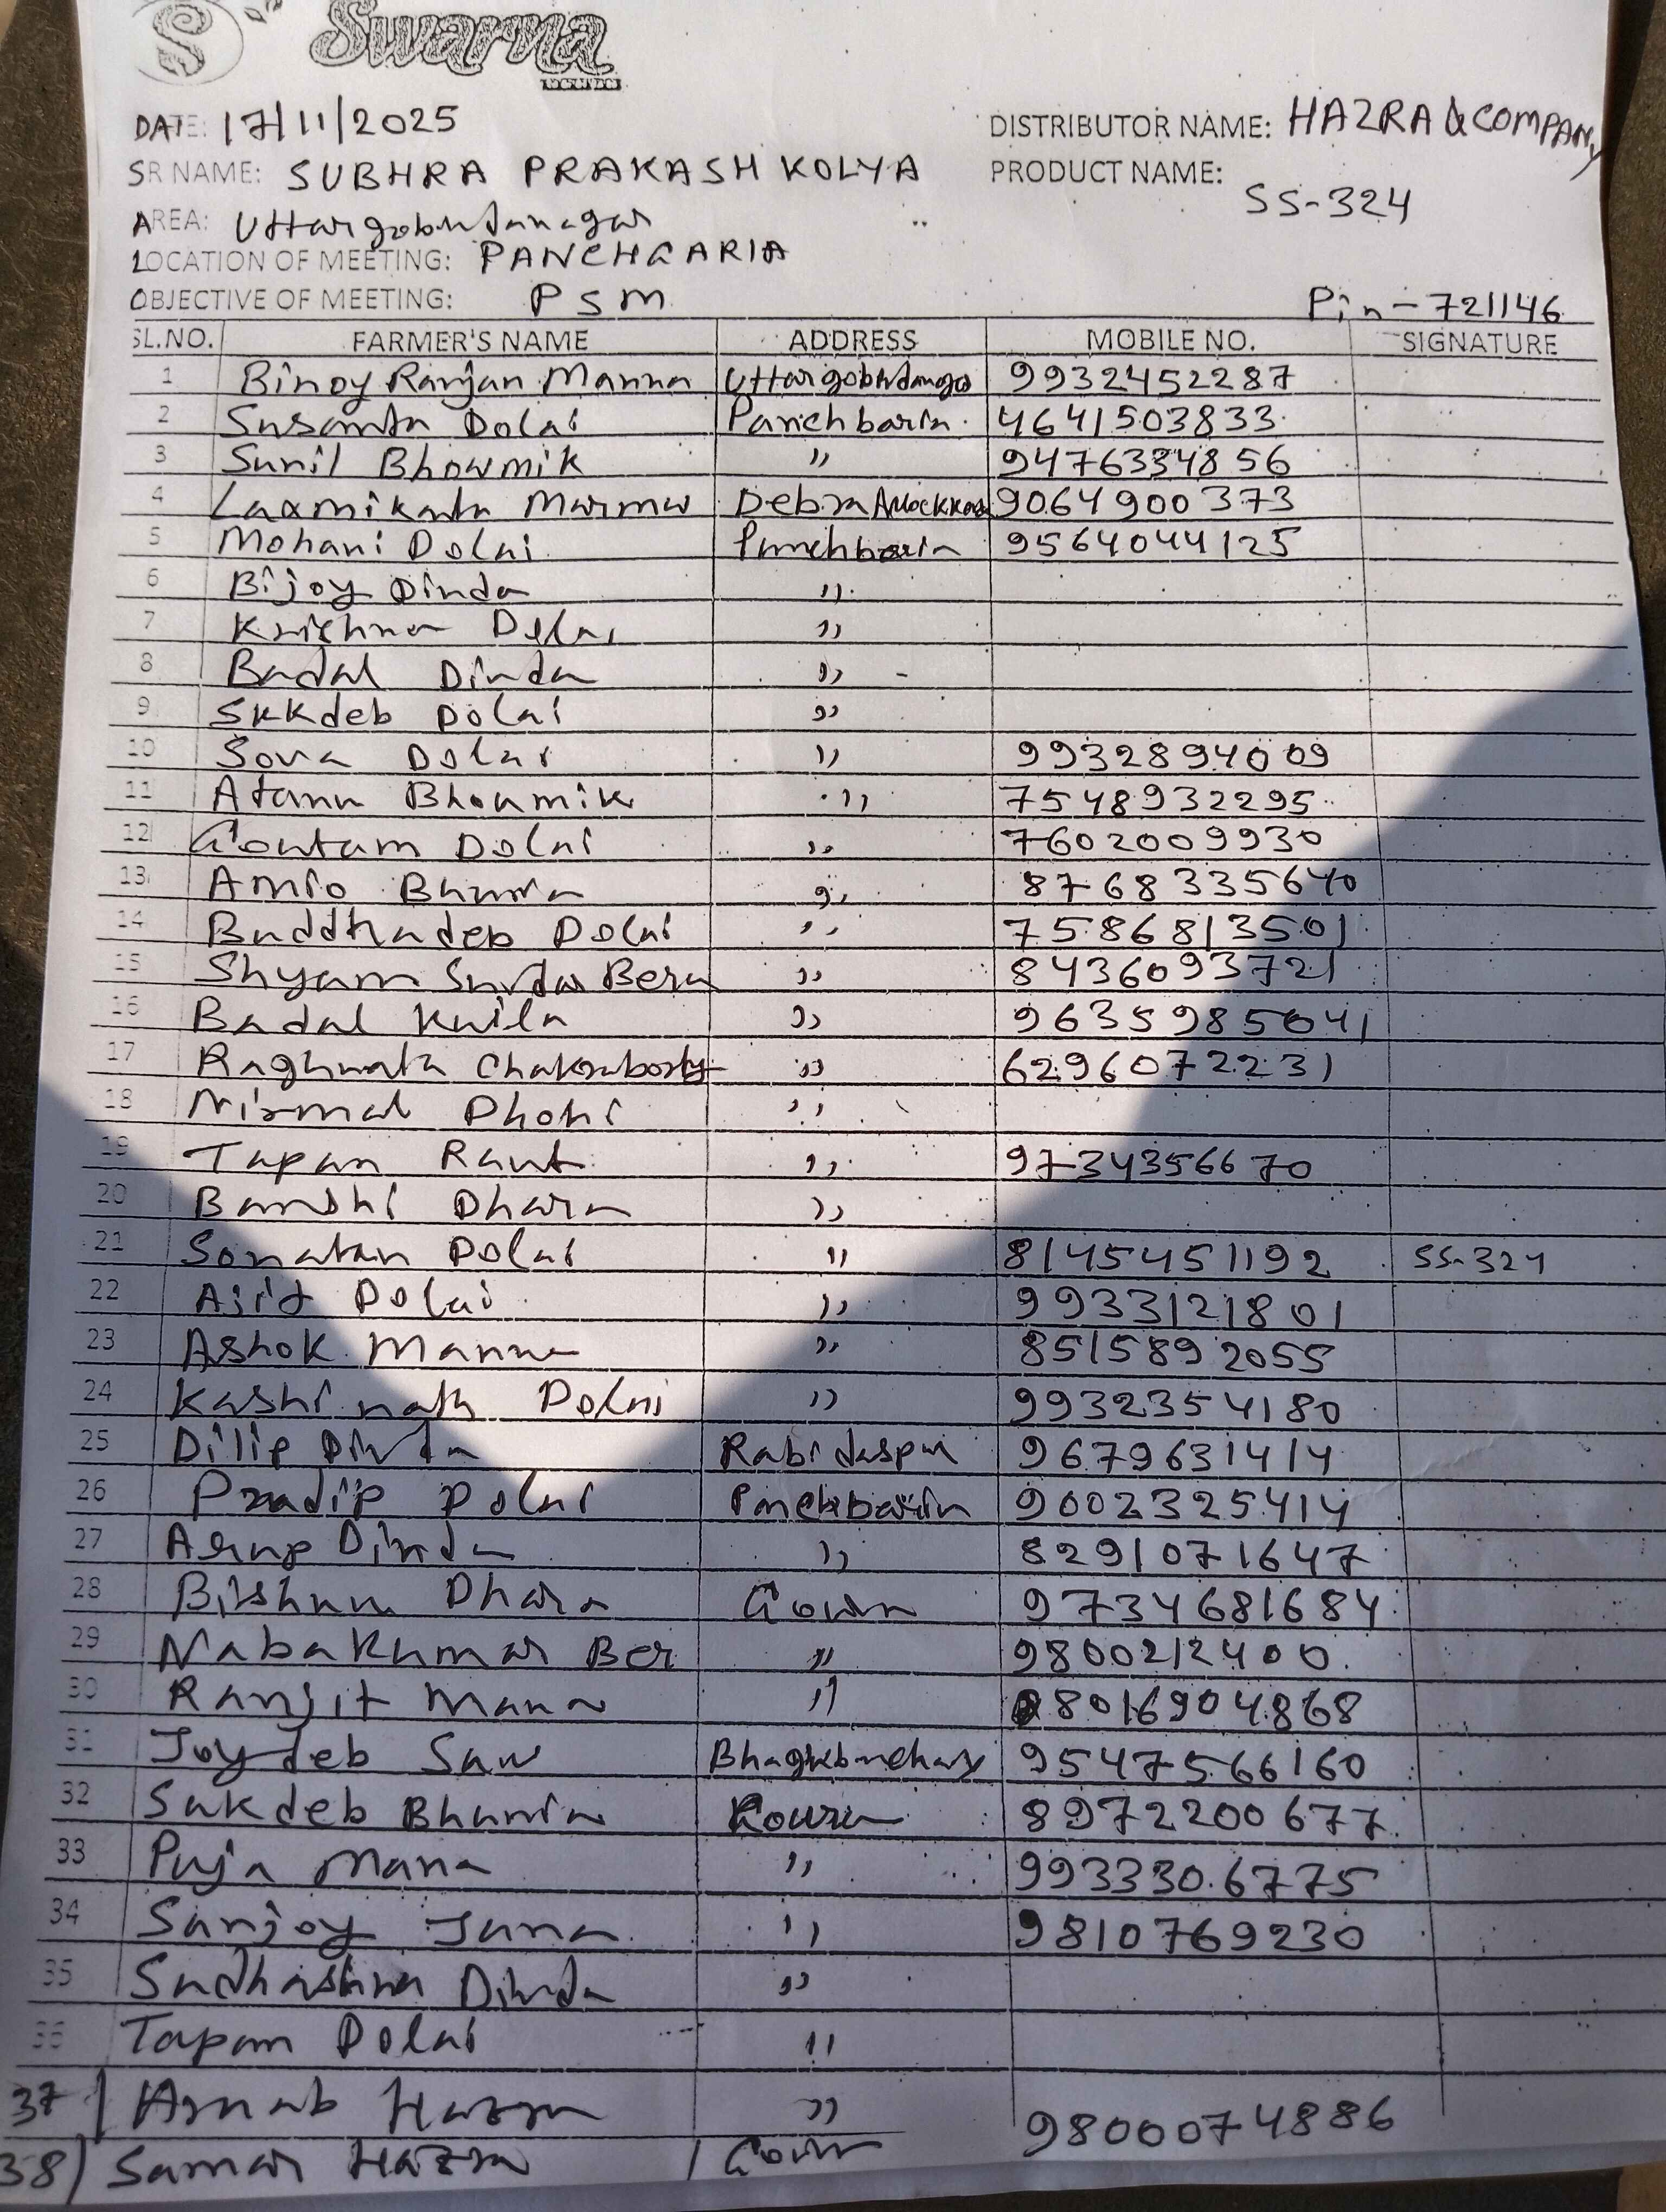 Swarna
DATE: 17/11/2025 DISTRIBUTOR NAME: HAZRA & COMPANY
SR NAME: SUBHRA PRAKASH KOLYA PRODUCT NAME: SS-324
AREA: Uttargobindanagar
LOCATION OF MEETING: PANCHGARIA
OBJECTIVE OF MEETING: PSM Pin-721146
SL.NO. FARMER'S NAME ADDRESS MOBILE NO. SIGNATURE
1 Binoy Ranjan Manna 9932452287
2 Susanta Dolai Panchbaria 4641503833
3 Sunil Bhowmik " 9476334856
4 Laxmikanta Murmu Debra 9064900373
5 Mohani Dolai Panchbaria 9564044125
6 Bijoy Dinda "
7 Krishna Dolai "
8 Badal Dinda "
9 Sukdeb Dolai "
10 Sova Dolai " 9932894009
11 Atanu Bhoumik " 7548932295
12 Goutam Dolai " 7602009930
13 Amio Bhunia " 8768335640
14 Buddhadeb Dolai " 7586813501
15 Shyam Sundar Bera " 8436093721
16 Badal Kuila " 9635985041
17 Raghunath Chakraborty " 6296072231
18 Nirmal "
19 Tapan Raut " 9734356670
20 Banshi Dhara "
21 Sonatan Dolai " 8145451192 SS-324
22 Ajit Dolai " 9933121801
23 Ashok Manna " 8515892055
24 Kashinath Dolai " 9932354180
25 Dilip Dinda Rabidaspur 9679631414
26 Pradip Dolai Panchbaria 9002325414
27 Arup Dinda " 8291071647
28 Bishnu Dhara Goura 9734681684
29 Nabakumar Ber " 9800212400
30 Ranjit Manna " 8016904868
31 Joydeb Sau 9547566160
32 Sukdeb Bhunia Goura 8972200677
33 Puja Mana " 9933306775
34 Sanjoy Jana " 9810769230
35 Dinda "
36 Tapan Dolai "
37 Arnab Hazra " 9800074886
38) Samar Hazra Goura